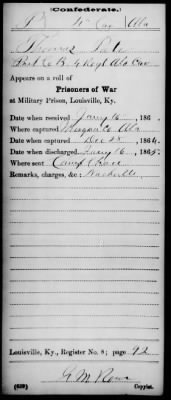 Confederate.
P 4 Cav Ala
Thomas
Pvt Co B. 4 Regt Ala Cav
Appears on a roll of
Prisoners of War
at Military Prison, Louisville, Ky.
Date when received Jany 16, 186 .
Where captured Morgan Co Ala
Date when captured Dec 28, 1864.
Date when discharged Jany 16, 1865.
Where sent Camp Chase
Remarks, charges, &c: Nashville
Louisville, Ky., Register No. 8; page 92
G M Rowe
(639) Copyist.